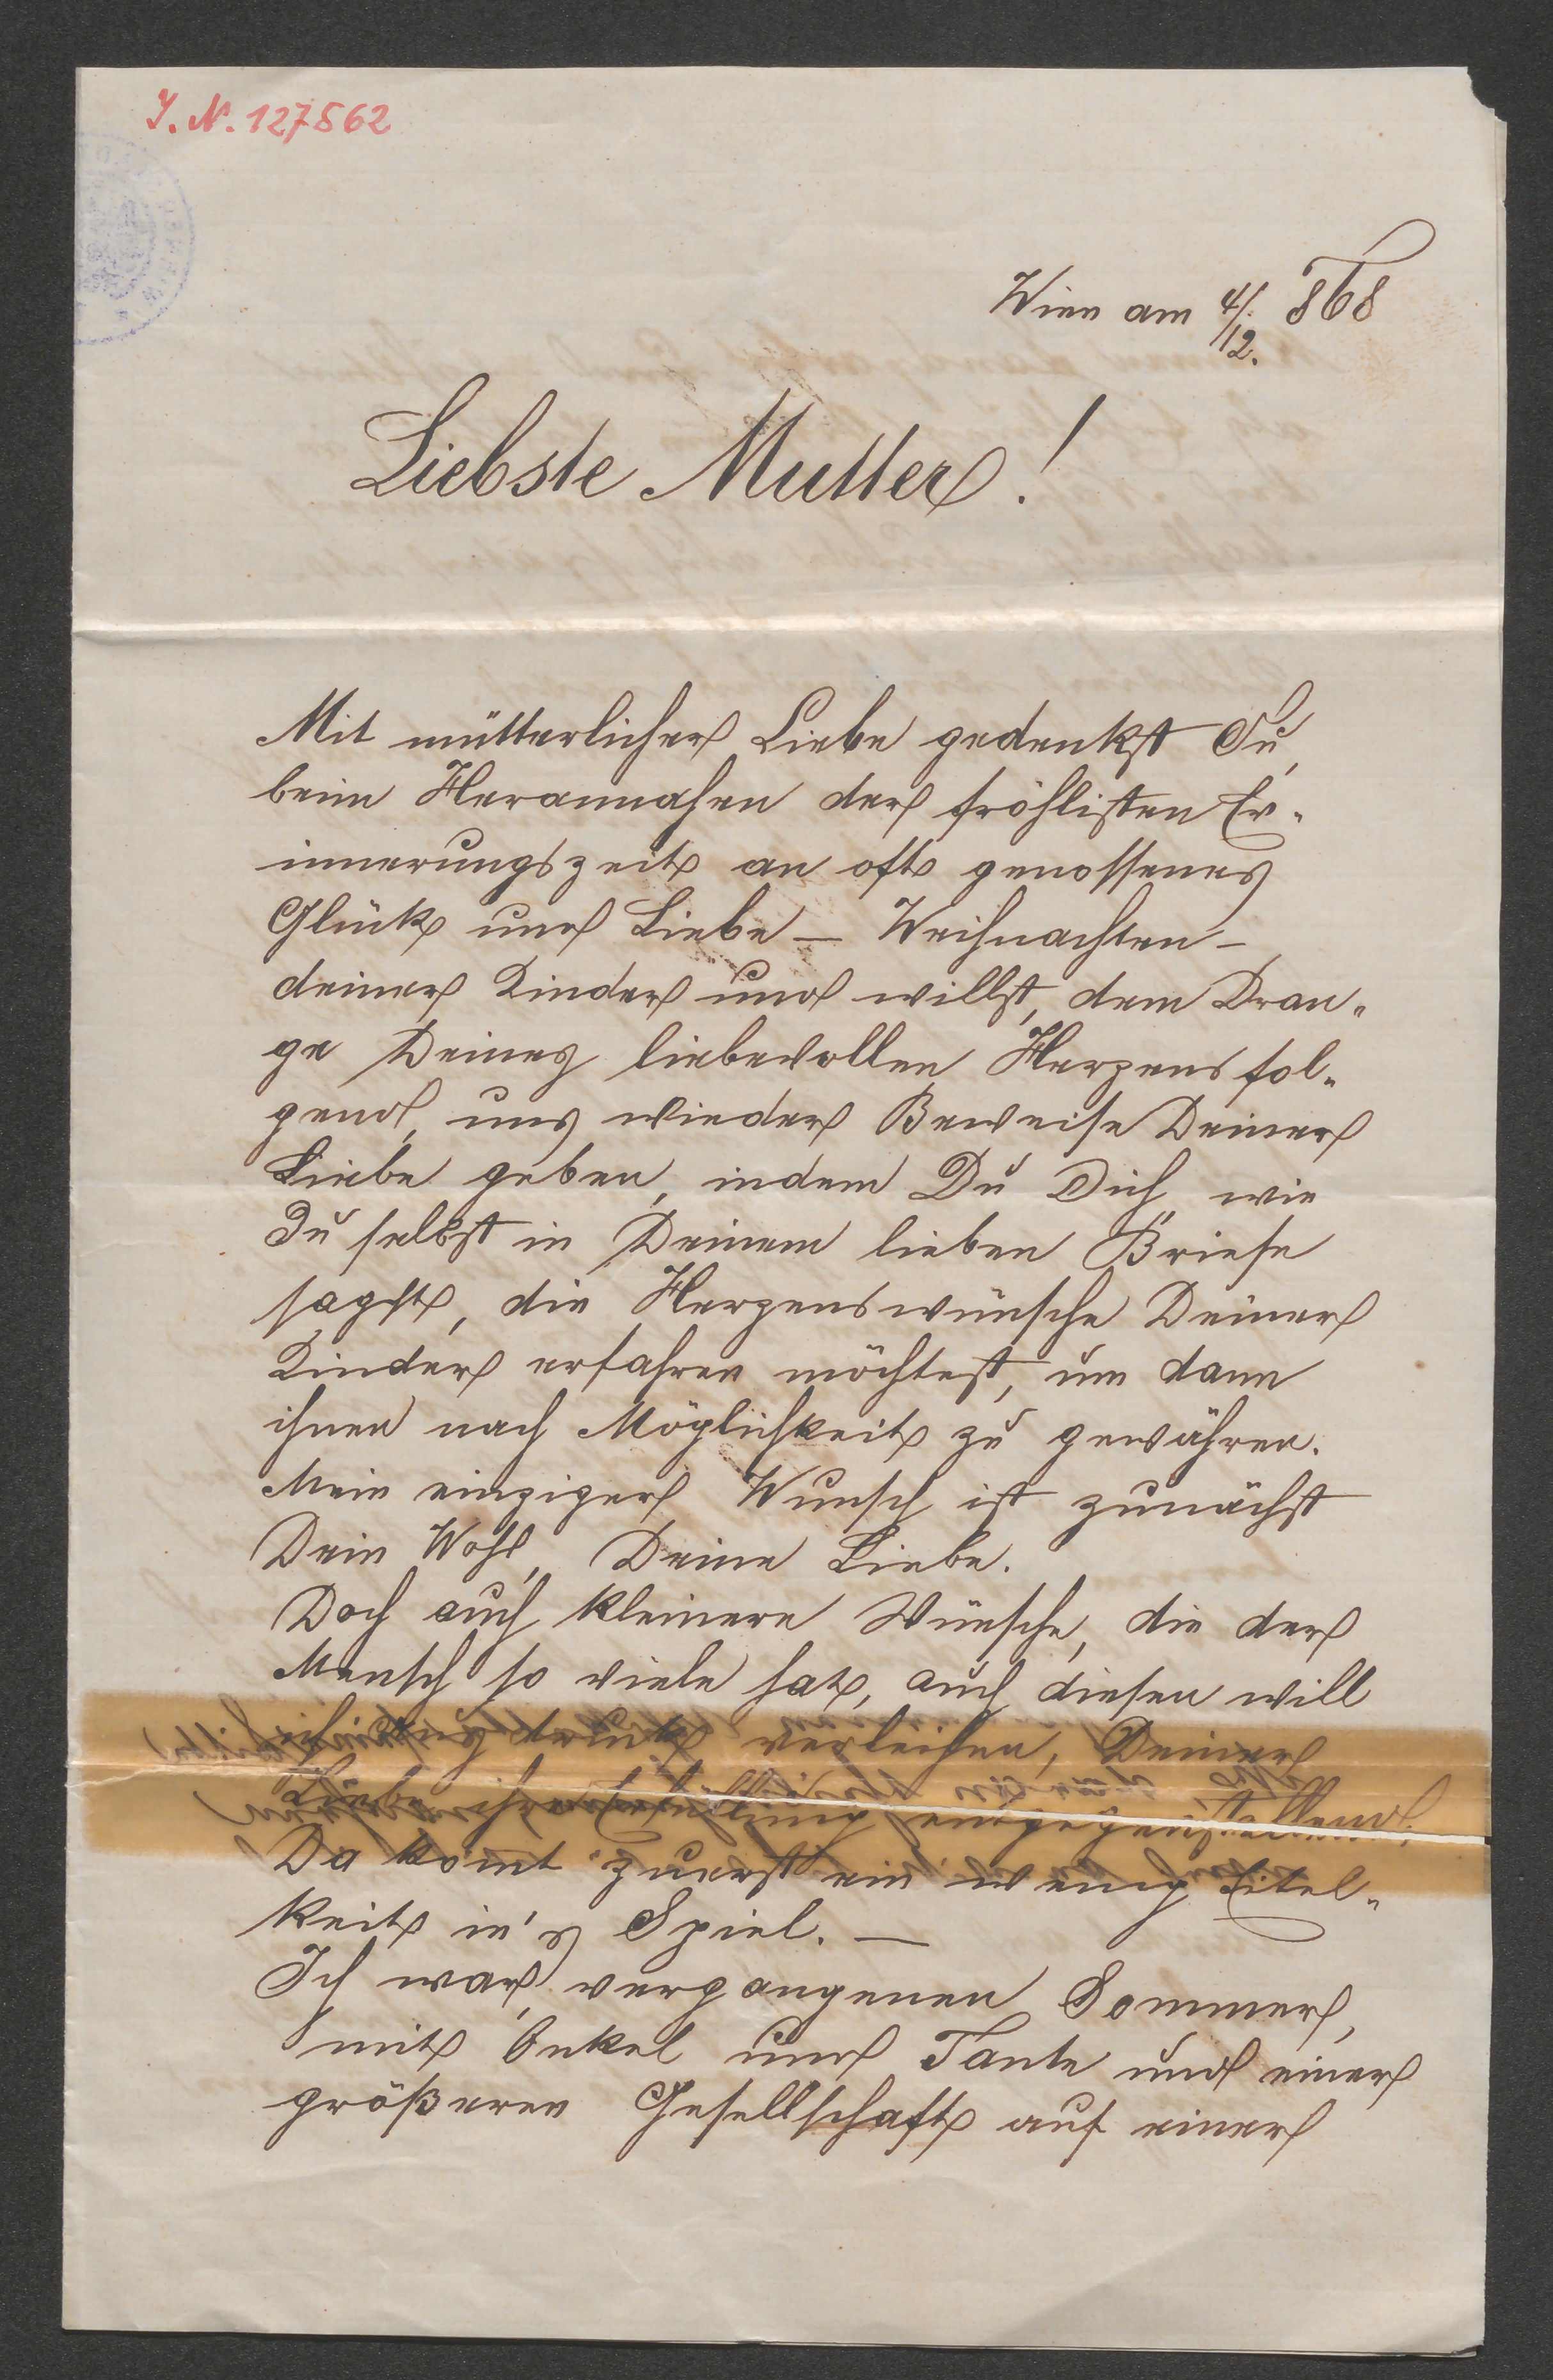 I. N. 127562
Wien am 4/12. 868
Liebste Mutter!
Mit mütterlicher Liebe gedenkst Du,
beim Herannahen der fröhlichsten Er-
innerungszeit an oft genossenes
Glück und Liebe – Weihnachten –
deiner Kinder und willst, dem Dran-
ge Deines liebevollen Herzens fol-
gend, uns wieder Beweise Deiner
Liebe geben, indem Du Dich, wie
Du selbst in Deinem lieben Briefe
sagst, die Herzenswünsche Deiner
Kinder erfahren möchtest, um dann
ihnen nach Möglichkeit zu gewähren.
Mein einziger Wunsch ist zunächst
Dein Wohl, Deine Liebe.
Doch auch kleinere Wünsche, die der
Mensch so viele hat, auch diesen will
ich Ausdruck verleihen, Deiner
Liebe ihre Erfüllung entgegenstellend.
Da kom̄t zuerst ein wenig Eitel-
keit in's Spiel. –
Ich war vergangenen Sommer,
mit Onkel und Tante und einer
größeren Gesellschaft auf einer